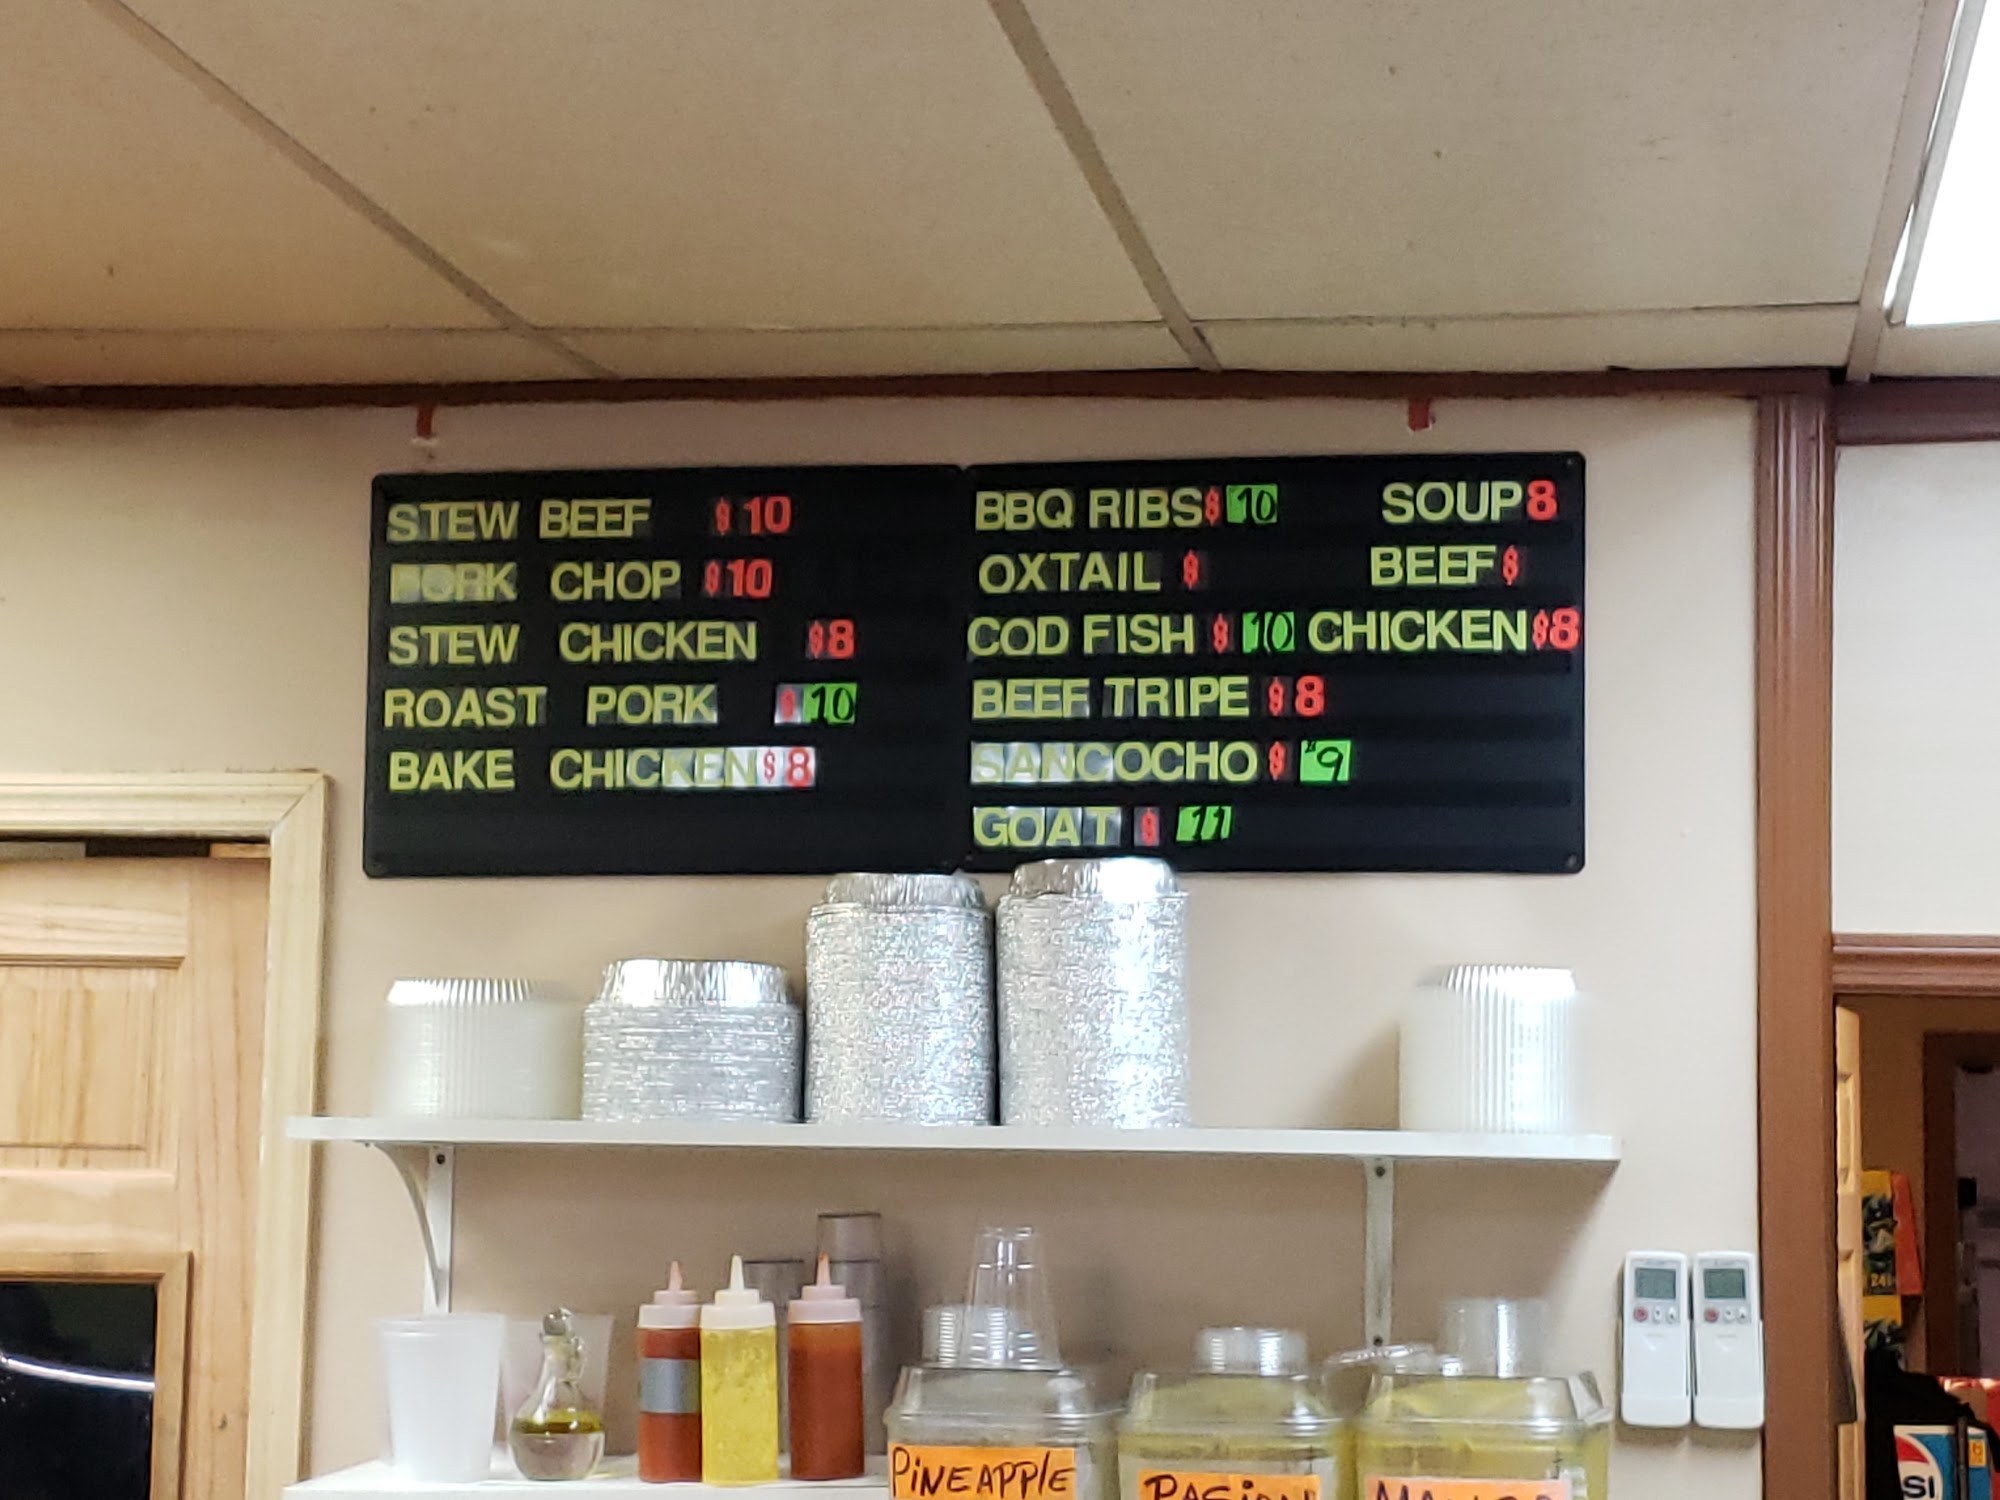 STEW BEEF $10
PORK CHOP $10
STEW CHICKEN $8
ROAST PORK $10
BAKE CHICKEN $8
BBQ RIBS $10
OXTAIL $
COD FISH $10
BEEF TRIPE $8
SANCOCHO $9
GOAT $11
SOUP 8
BEEF $
CHICKEN $8
PiNEAPPlE
PASiON